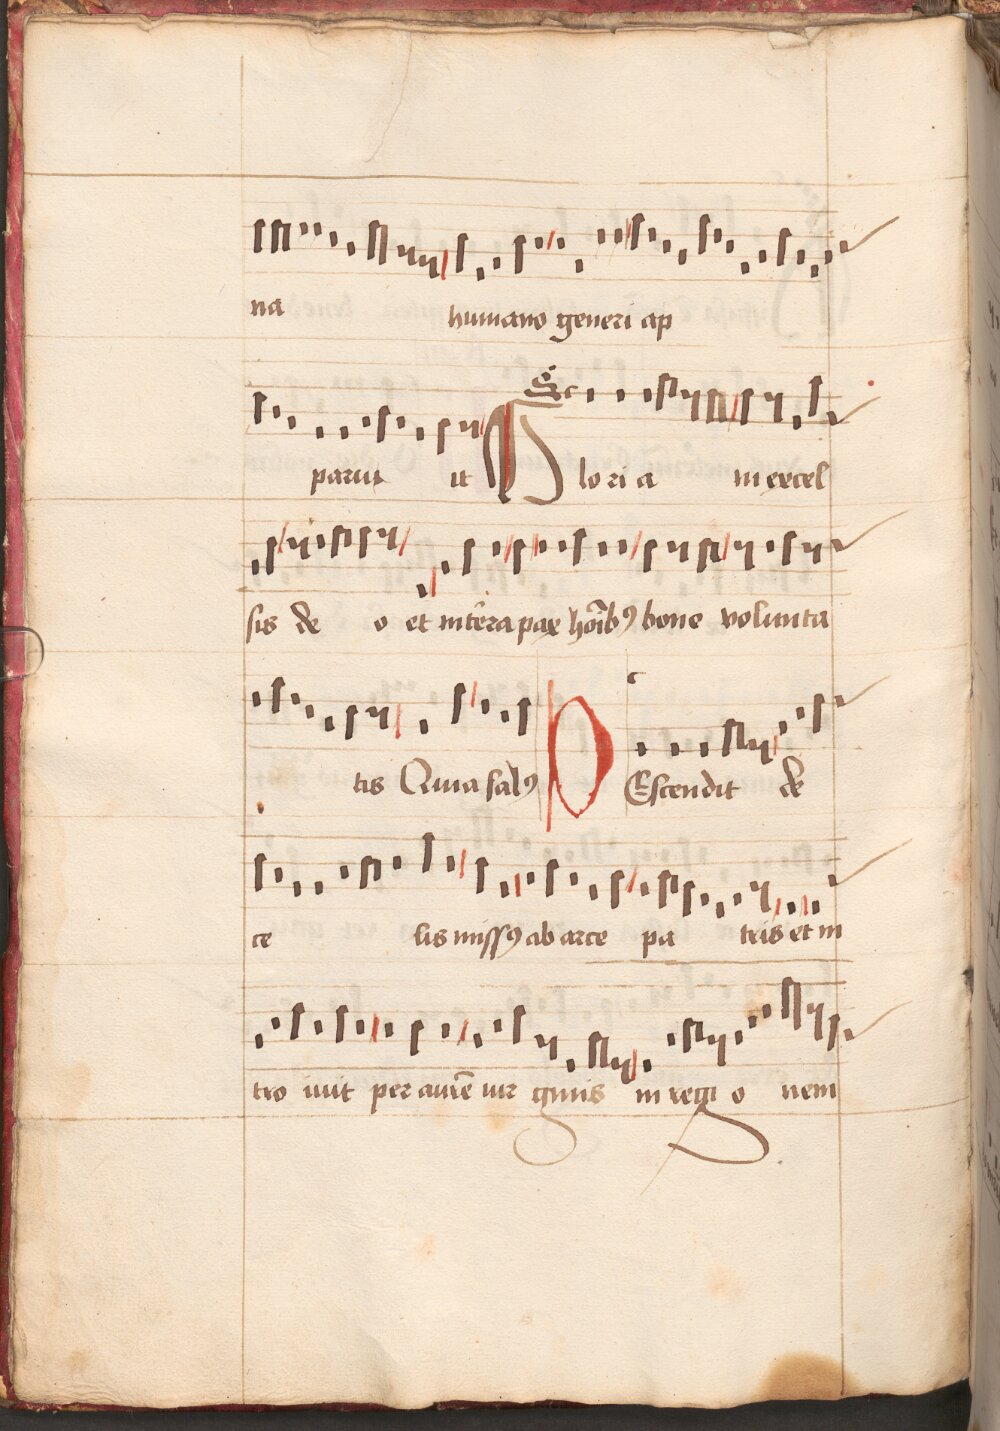 na humano generi ap
paru it Gloria in excel
sis de o et in terra pax hoĩbꝰ bone volunta
tis Quia salꝰ DEscendit de
ce lis missꝰ ab arce pa tris et in
tro ivit per aurẽ vir ginis in regi o nem